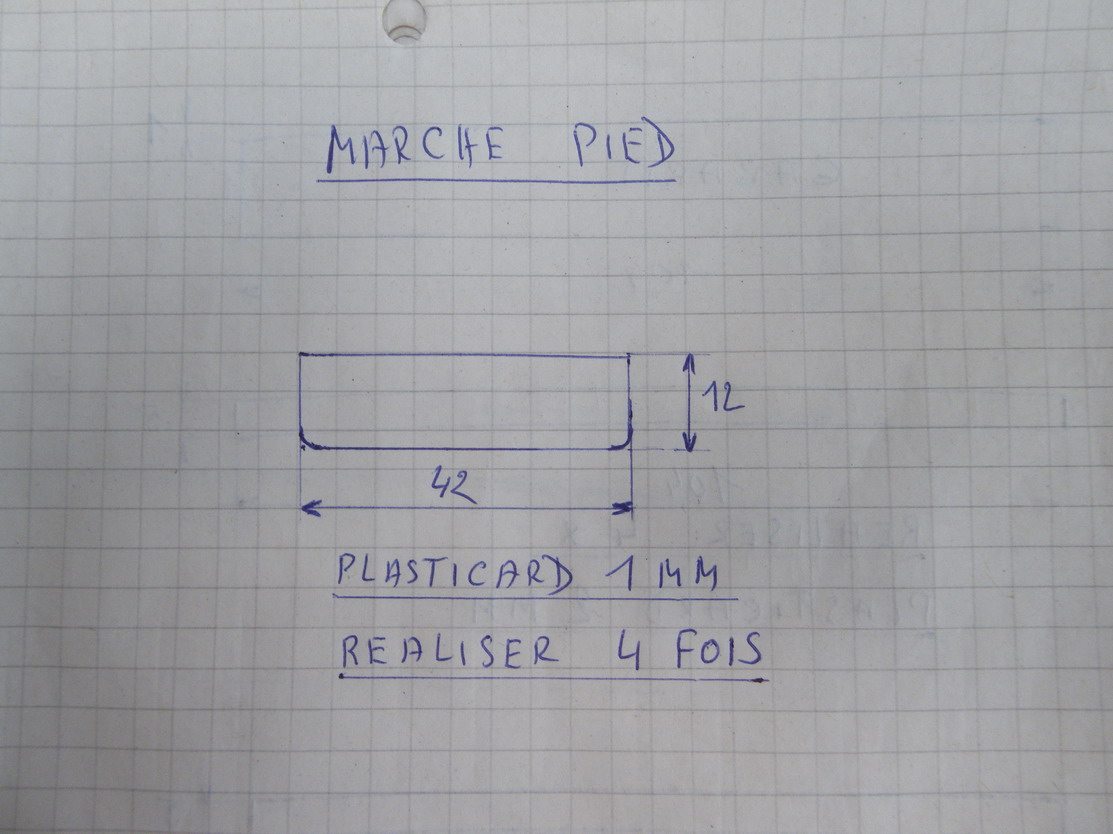 MARCHE PIED
12
42
PLASTICARD 1 MM
REALISER 4 FOIS